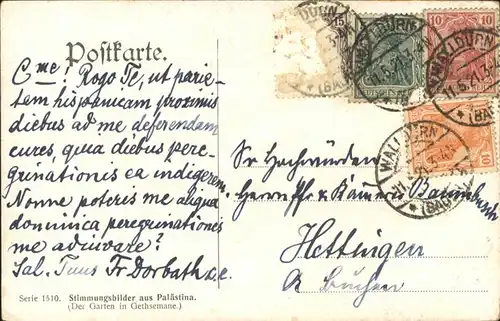 Postkarte.
Cme! Rogo Te, ut parie-
tem hispanicam proximis
diebus ad me deferendam
cures, qua diebus pere-
grinationis ea indigerem.
Nonne poteris me aliqua
dominica peregrinationis
me adiuvare?
Sal. Tuus Fr Dorbath c.e.
Serie 1510. Stimmungsbilder aus Palästina.
(Der Garten in Gethsemane.)
15
10
10
WALLDÜRN
11.5.21.3-4N
* (BADEN)
Sr Hochwürden
Herrn Pf u Kämmerer
Hettingen
Buchen